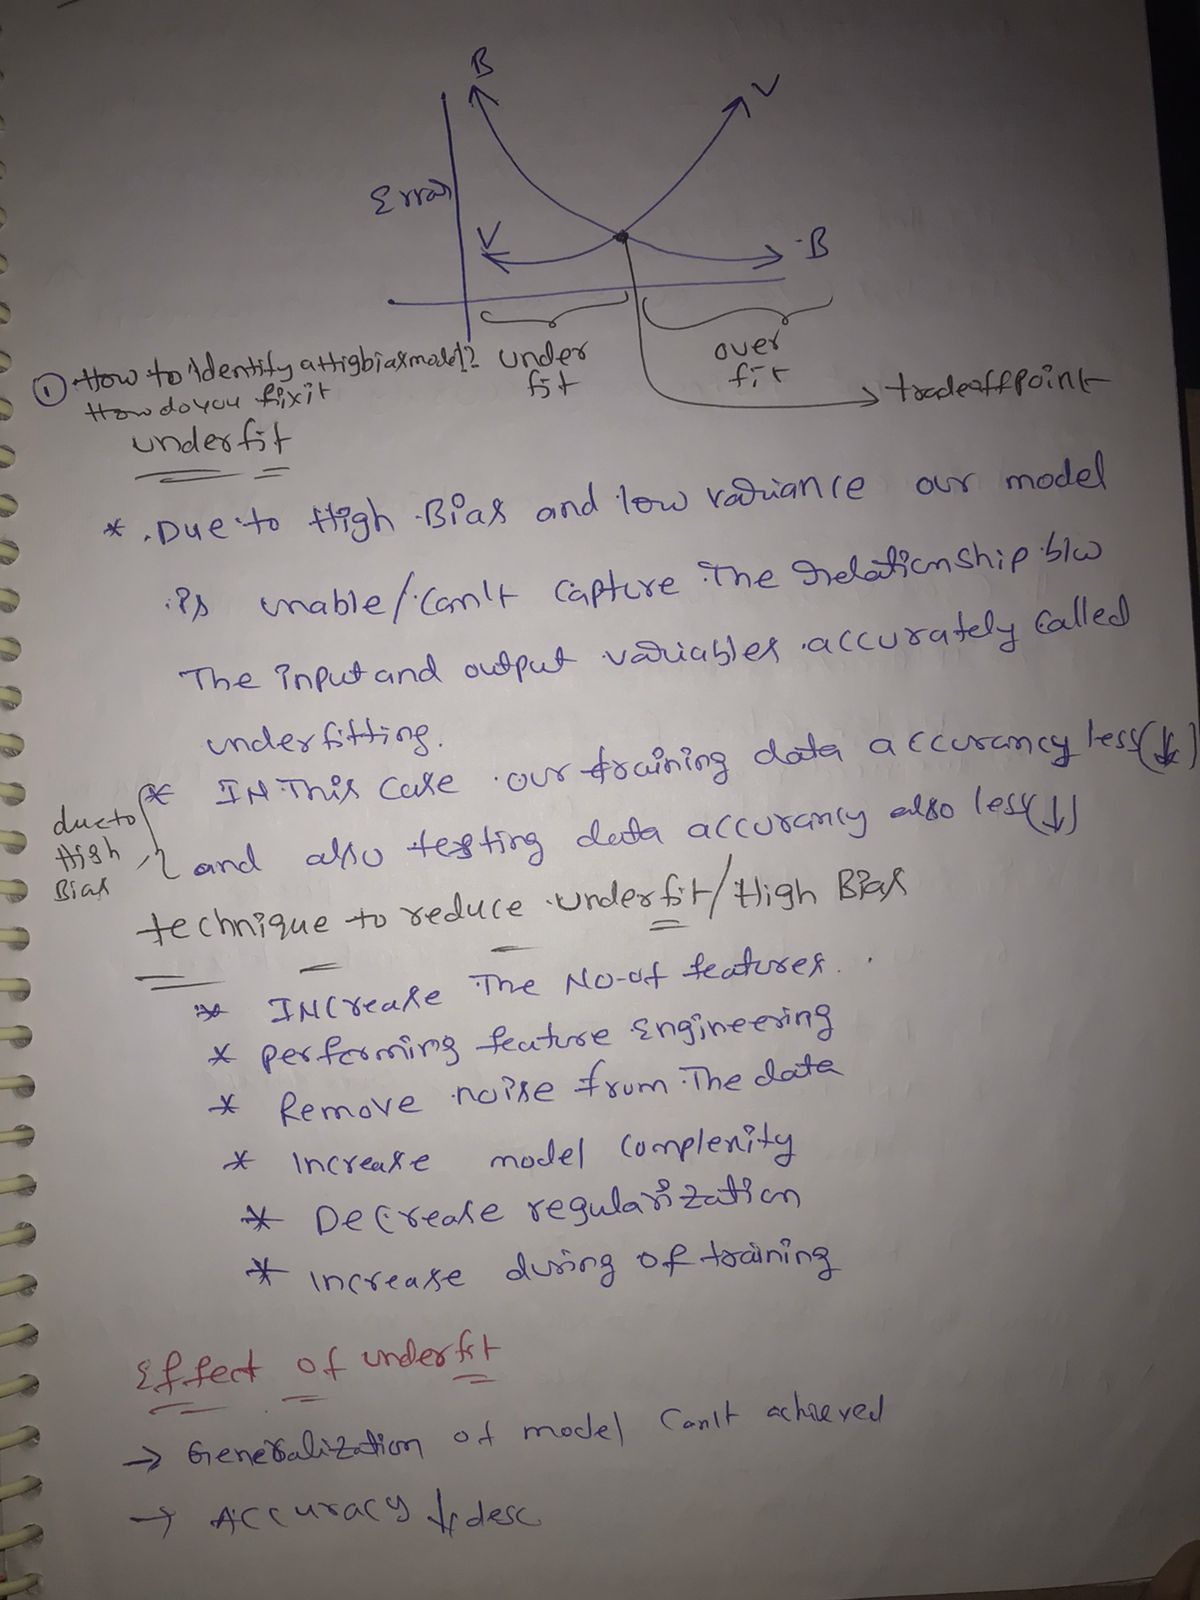 B
V
Error
V
B
① How to Identify a High bias model?
How do you fix it
under
fit
over
fit
tradeoff point
underfit
* Due to High Bias and low variance our model
is unable/can't capture The relationship b/w
The input and output variables accurately called
underfitting.
due to
High
Bias
* IN This case our training data accurancy less(↓)
and also testing data accurancy also less(↓)
technique to reduce underfit/High Bias
* INcrease The No-of features.
* performing feature Engineering
* Remove noise from The data
* Increase model complexity
* Decrease regularization
* increase during of training
Effect of underfit
→ Generalization of model Can't achieved
→ Accuracy ↓ desc